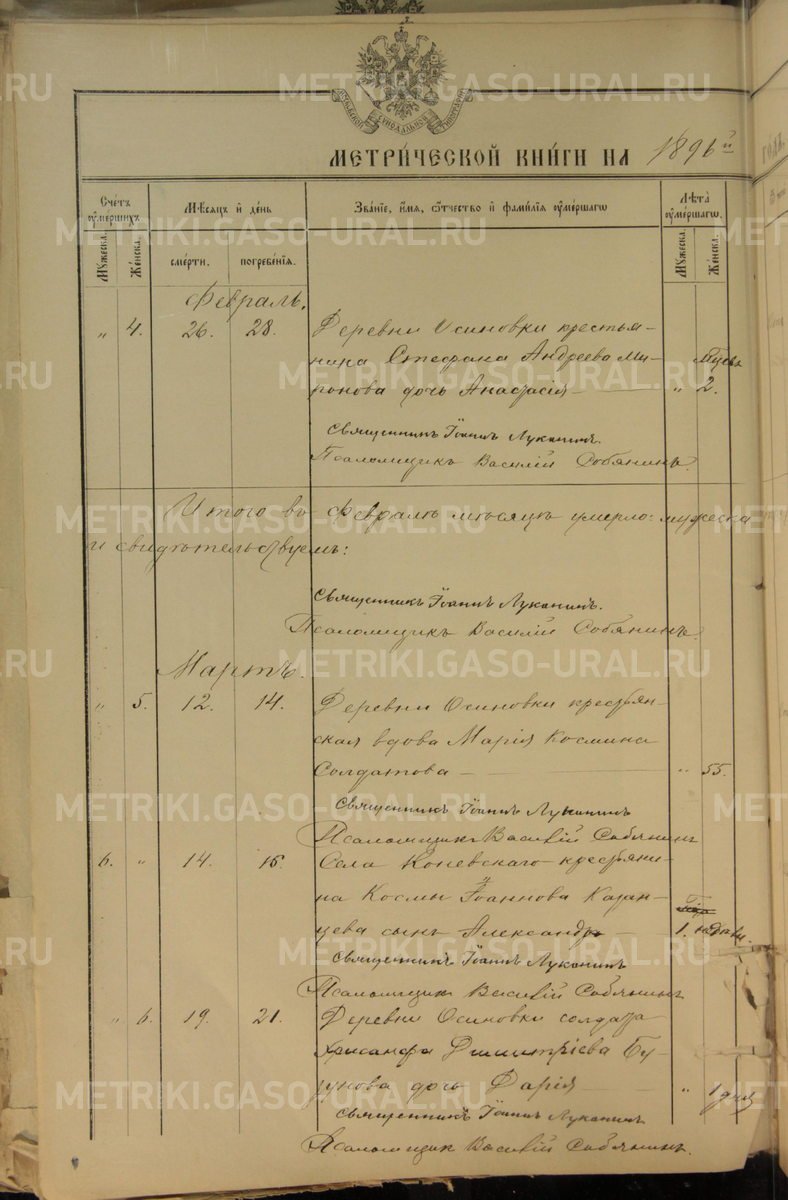 МЕТРИ́ЧЕСКОЙ КНИ́ГИ НА 1896й
Счетъ ѹмершихъ.
Мѣсяцъ и день
Званіе, имя, ѻтчество и фамилія ѹмершагѡ
Лѣта ѹмершагѡ.
Мѹжеска.
Женска.
смерти.
погребенія.
Мѹжеска.
Женска.
Февраль.
„ 4. 26. 28. Деревни Осиновки крестья-
нина Стефана Андреева Ми-
ронова дочь Анастасія — „ 2.
Священникъ Іоаннъ Луканинъ
Псаломщикъ Василій Собянинъ.
Итого въ Февралѣ мѣсяцѣ умерло: мужеска
и свидѣтельствуемъ:
Священникъ Іоаннъ Луканинъ.
Псаломщикъ Василій Собянинъ.
Мартъ.
„ 5. 12. 14. Деревни Осиновки крестьян-
ская вдова Марія Космина
Солдатова — „ 55.
Священникъ Іоаннъ Луканинъ
Псаломщикъ Василій Собянинъ
6. „ 14. 16. Села Коневскаго крестьяни-
на Космы Іоаннова Каран-
цева сынъ Александръ — 1.
Священникъ Іоаннъ Луканинъ
Псаломщик Василій Собянинъ
„ 6. 19. 21. Деревни Осиновки солдата
Хрисанфа Димитріева Бу-
нова дочь Дарія — „ 1 дня
Священникъ Іоаннъ Луканинъ
Псаломщик Василій Собянинъ.
METRIKI.GASO-URAL.RU